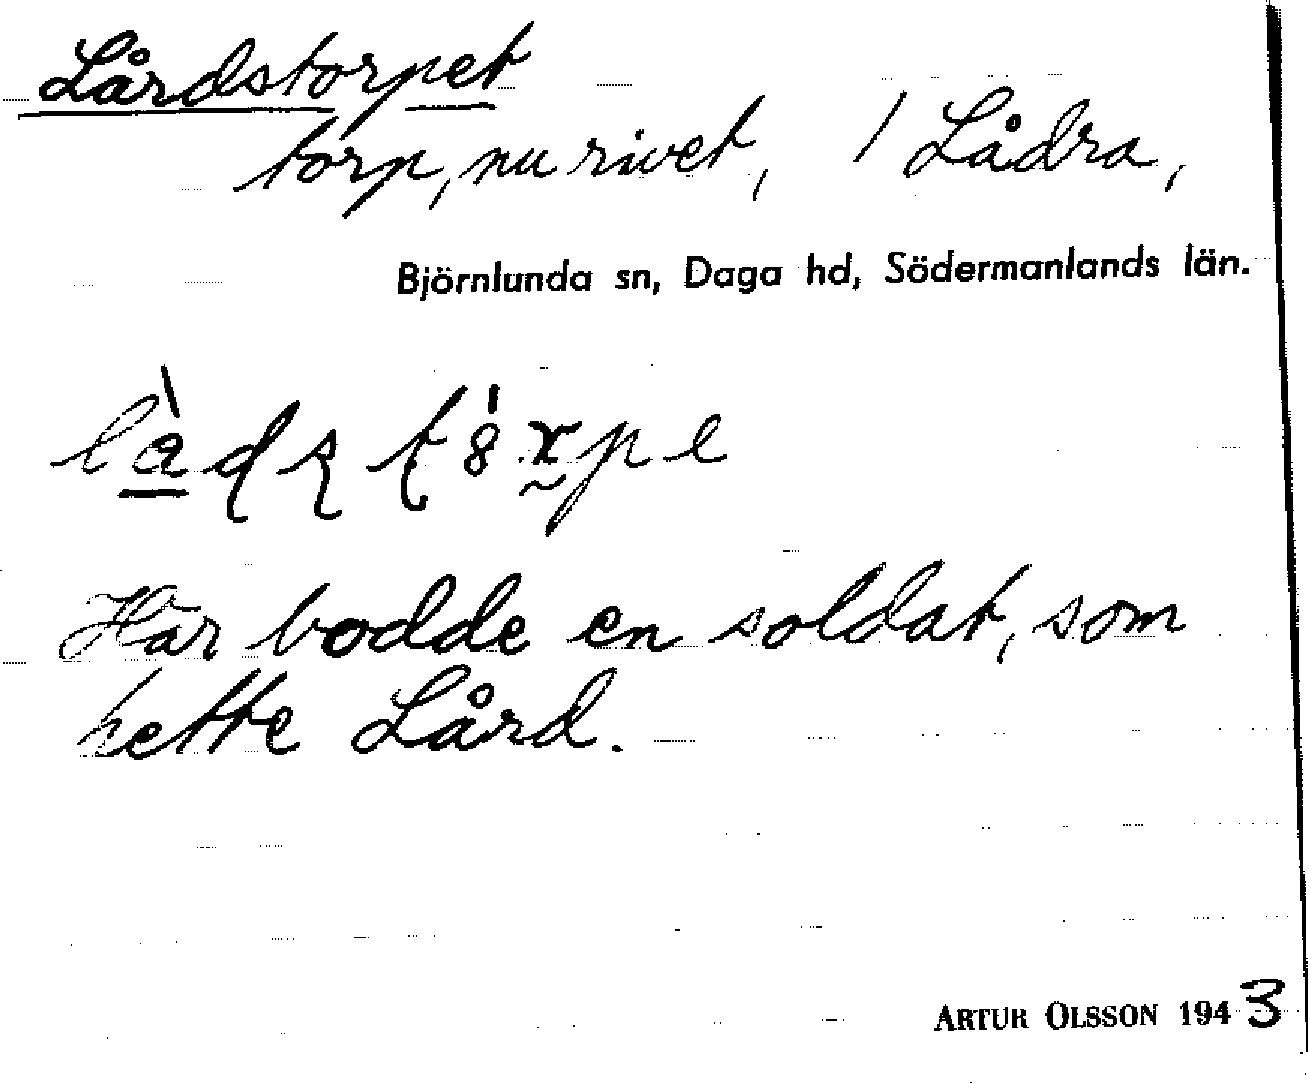 Lårdstorpet
torp, nu rivet, / Lådra,
Björnlunda sn, Daga hd, Södermanlands län.
Här bodde en soldat, som
hette Lård.
ARTUR OLSSON 1943